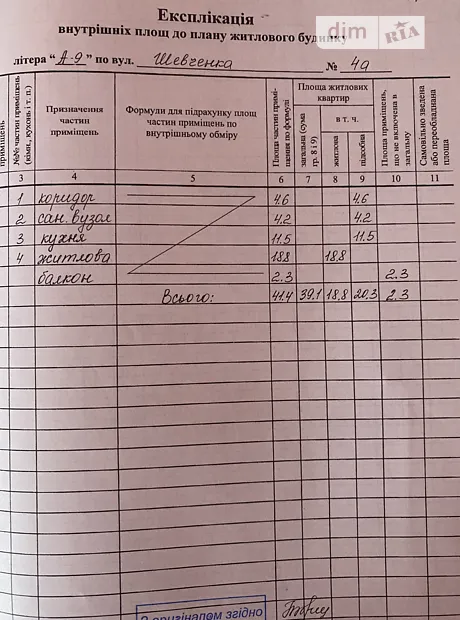 Експлікація
внутрішніх площ до плану житлового будинку
dim RIA
літера "А-9" по вул. Шевченка № 4а
приміщень
№№ частин приміщень (кімн., кухонь і т. п.)
Призначення частин приміщень
Формули для підрахунку площ частин приміщень по внутрішньому обміру
Площа частин приміщення по формулі
Площа житлових квартир
загальна (сума гр. 8 і 9)
в т. ч.
житлова
підсобна
Площа приміщень, що не включена в загальну
Самовільно зведена або переобладнана площа
3 4 5 6 7 8 9 10 11
1 коридор 4.6 4.6
2 сан. вузол 4.2 4.2
3 кухня 11.5 11.5
4 житлова 18.8 18.8
балкон 2.3 2.3
Всього: 41.4 39.1 18.8 20.3 2.3
З оригіналом згідно